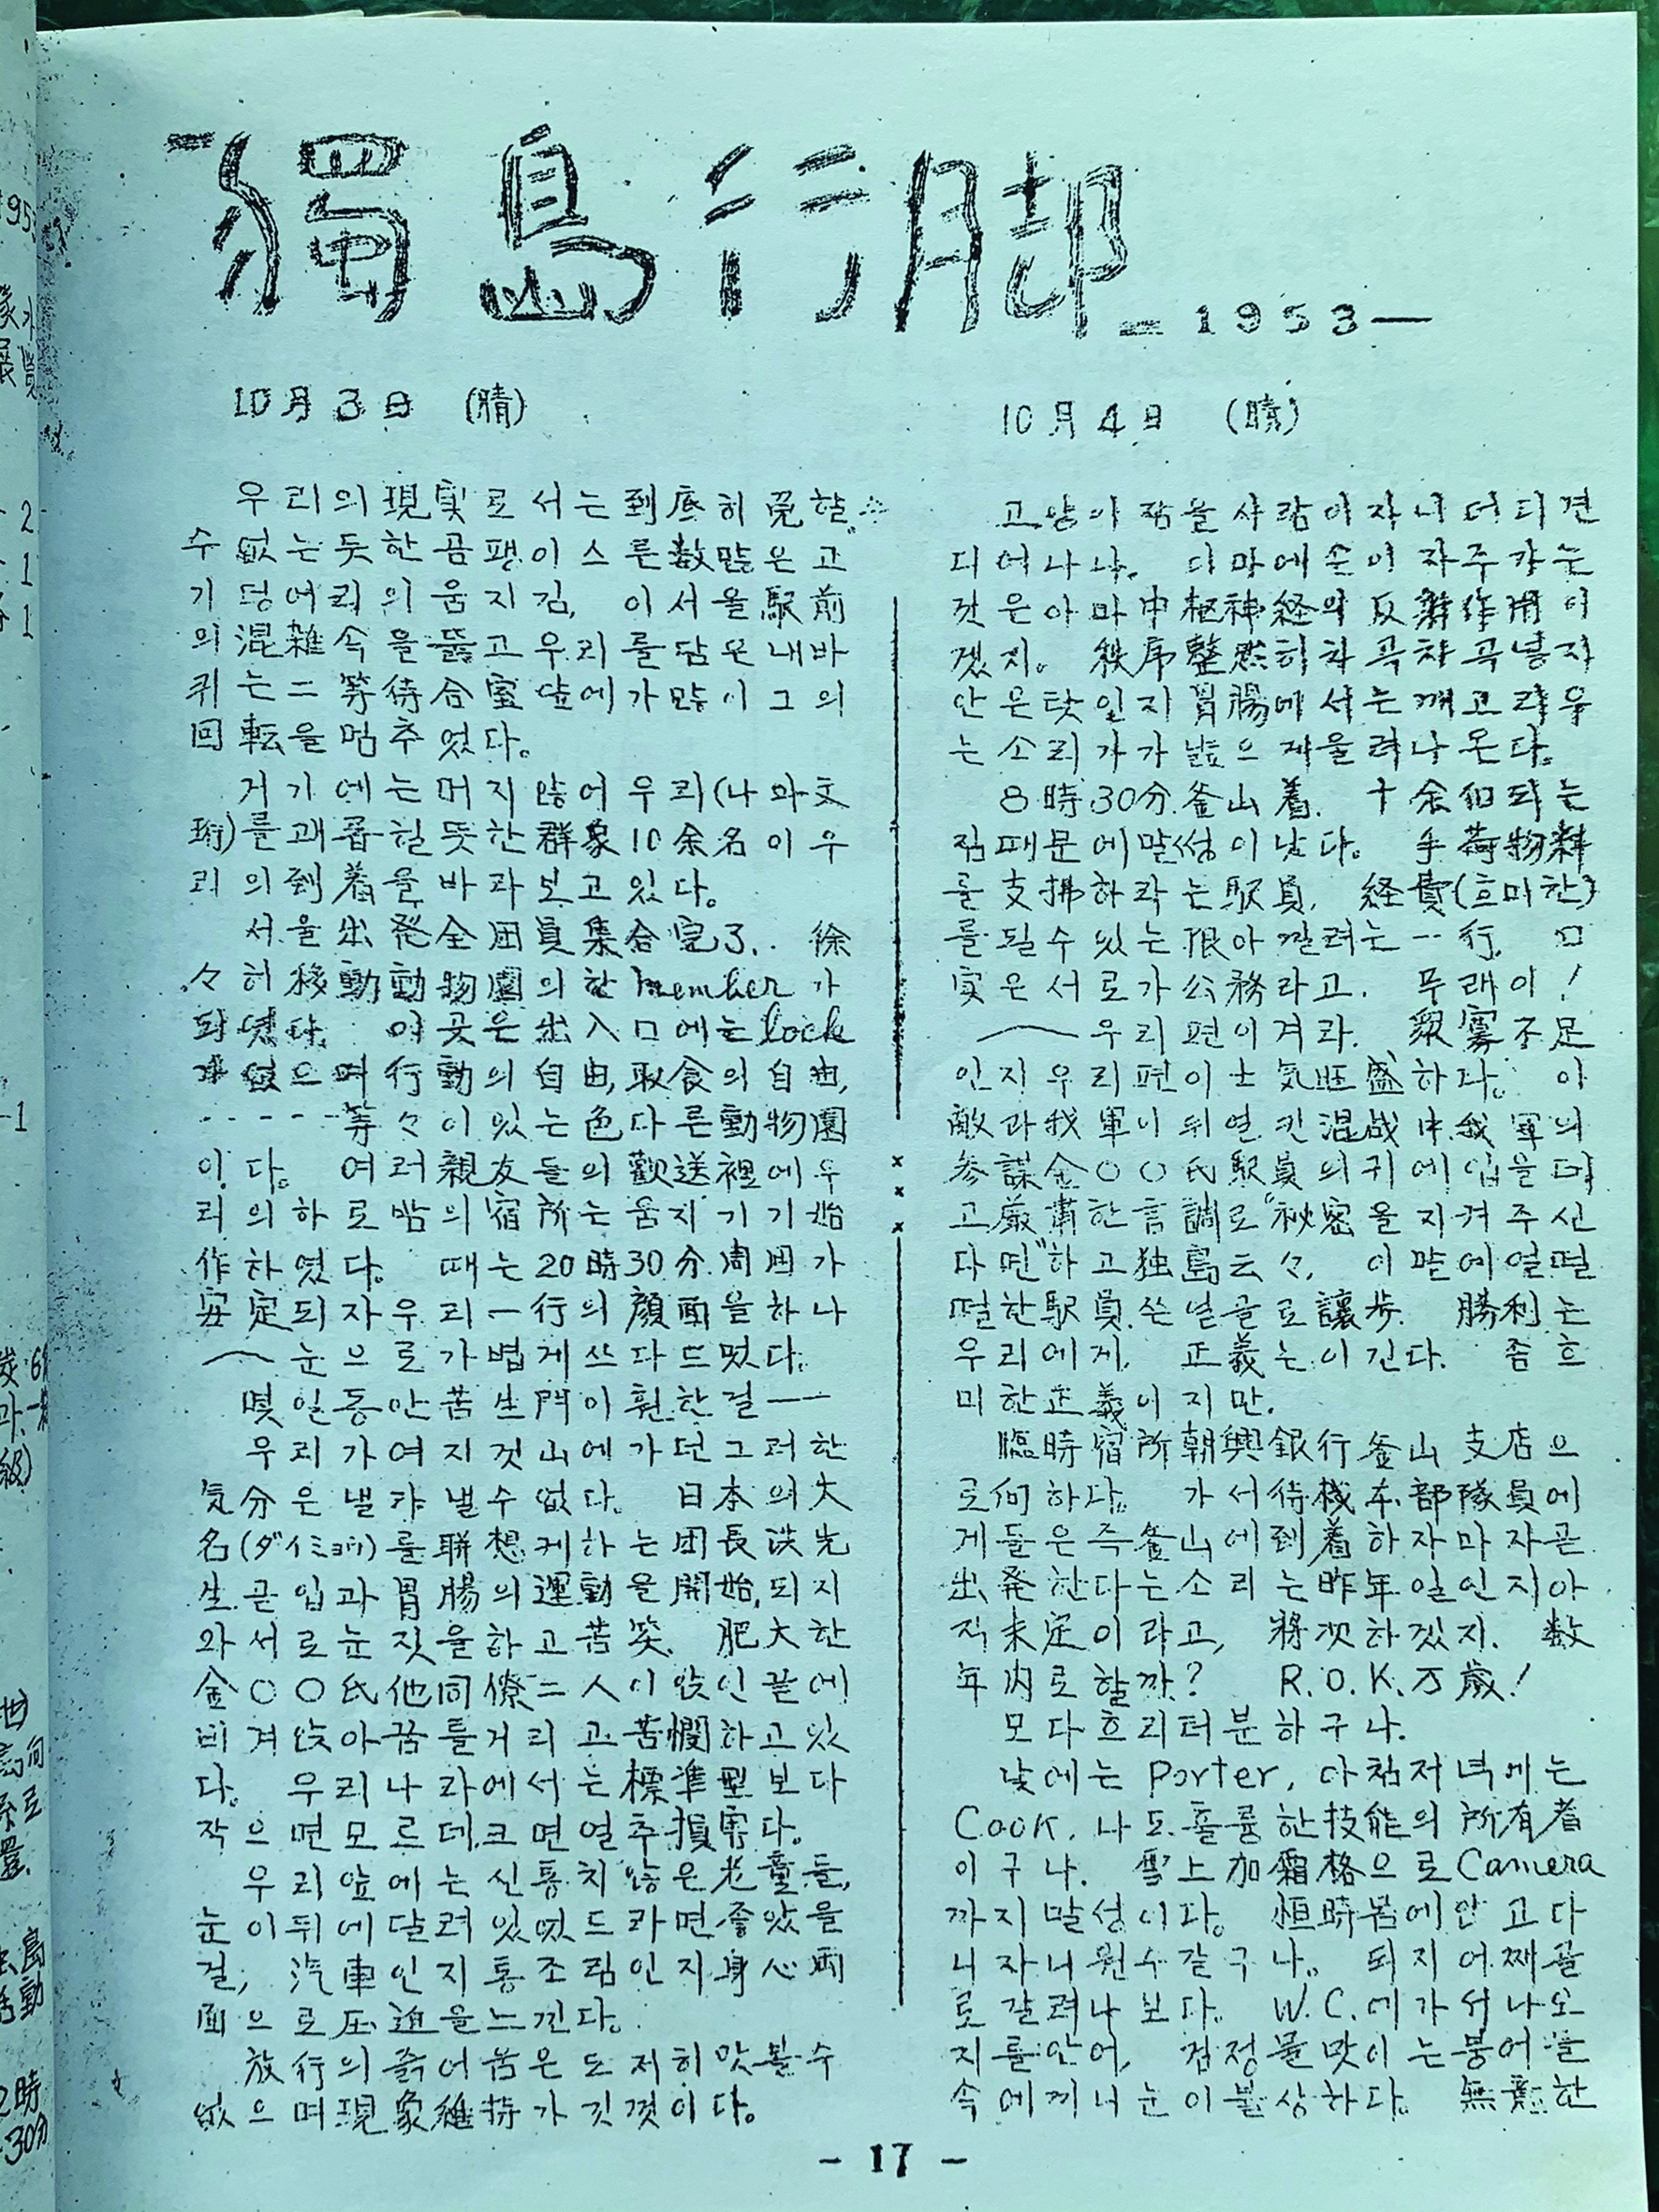 獨島行脚
－1953－
10月3日 (晴)
우리의現実로서는到底히免할
수없는듯한곰팽이스른数많은고
기덩어리의움지김, 이서울駅前
의混雑속을뚫고우리를담은내바
퀴는二等待合室앞에가많이그의
回転을멈추었다.
거기에는머지않어우리(나와文
珩)를괘롭힐듯한群象10余名이우
리의到着을바라보고있다.
서울出発全団員集合完了. 徐
々히移動動物園의한member가
되였다. 이곳은出入口에는lock
가없으며行動의自由,取食의自由,
-----等々이있는色다른動物園
이다. 여러親友들의歡送裡에우
리의하로밤의宿所는움지기기始
作하였다. 때는20時30分.周囲가
安定되자우리一行의顔面을하나
눈으로가볍게쓰다드멌다.
몇일동안苦生門이훤한걸——
우리가여지껏山에가던그러한
気分은낼랴낼수없다. 日本의大
名(ダイミョウ)를聯想케하는団長洪先
生.곧입과胃腸의運動을開始,되지
와서로눈짓을하고苦笑. 肥大한
金○○氏他同僚二人이앉인끝에
비겨앉아꿈틀거리고苦憫하고있
다. 우리나라에서는標準型보다
작으면모르데.크면열추損害다.
우리앞에는신통치않은老童들,
눈이뒤에달려있었드라면좋았을
걸, 汽車인지통조림인지身心両
面으로圧迫을느낀다.
放行의즑어움은도저히맛볼수
없으며現象維持가깃껏이다.
10月4日 (晴)
고양이잠을사람이자니더디견
디어나나. 디마에손이자주가는
것은아마中枢神経의反射作用이
겠지. 秩序整然히차곡차곡넣지
안은탓일지胃腸에서는깨고라우
는소리가가끔으 재울려나온다.
8時30分.釜山着. 十余個되는
짐때문에말썽이낫다. 手荷物料
를支拂하라는駅員. 経費(흐미한)
를될수있는限아낄려는一行. 口
実은서로가公務라고. 무래이!
우리편이겨라. 眾寡不足
인지우리편이士気旺盛하다. 이
敵과我軍이뒤열킨混战中.我軍의
参謀金○○氏駅員의귀에입을대
고厳粛한言調로"秘密을지켜주신
다면"하고独島云々. 이말에열떨
떨한駅員.쓴얼골로讓步. 勝利는
우리에게. 正義는이긴다. 좀흐
미한正義이지만.
臨時宿所朝興銀行釜山支店으
로何하다. 가서待機本部隊員에
게들은즉釜山에到着하자마자곧
出発한다는소리는昨年일인지아
직未定이라고, 將次하겠지. 数
年内로할까? R.O.K.万歳!
모다흐리터분하구나.
낮에는Porter, 아침저녁에는
Cook. 나도훌륭한技能의所有者
이구나. 雪上加霜格으로Camera
까지말성이다. 恒時몸에안고다
니자니원수갈구나. 되지어째골
로갈려나보다. W.C.에가서나오
지를안어, 검정물맛이는붕어물
속에끼니눈이불상하다. 無意한
- 17 -